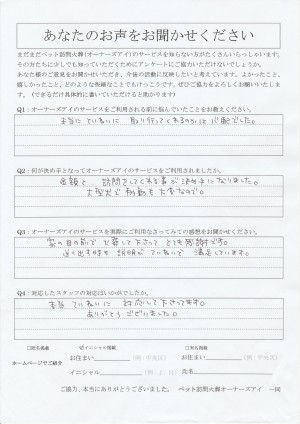 あなたのお声をお聞かせください
まだまだペット訪問火葬(オーナーズアイ)のサービスを知らない方がたくさんいらっしゃいます。
その方たちに少しでも知っていただくためにアンケートにご協力いただけないでしょうか。
あなた様のご意見をお聞かせいただき、今後の活動に反映したいと考えています。よかったこと、
嬉しかったこと、どのような些細なことでもけっこうです。ぜひご協力をよろしくお願いいたします。(できるだけ具体的に書いていただけると助かります)
Q1:オーナーズアイのサービスをご利用される前に悩んでいたことをお教えください。
本当に ていねいに 取り行ってくれるのかは 心配でした。
Q2:何が決め手となってオーナーズアイのサービスを利用されましたか。
金額と 訪問をしてくれる事が 決め手になりました。
大型犬で 移動も 大変なので。
Q3:オーナーズアイのサービスを実際にご利用なさってみての感想をお聞かせください。
家の目の前で 火葬して下さって とても感謝です。
送り出す時も 説明が ていねいで 満足しています。
Q4:対応したスタッフの対応はいかがでしたか。
本当 ていねいに 対応して下さってます。
ありがとう ございました。
□匿名掲載 ☑イニシャル掲載 □実名掲載
ホームページでご紹介
お住まい (例:中央区) お住まい (例:中央区)
イニシャル (例:J.H) 氏名
ご協力、本当にありがとうございました。 ペット訪問火葬オーナーズアイ 一同